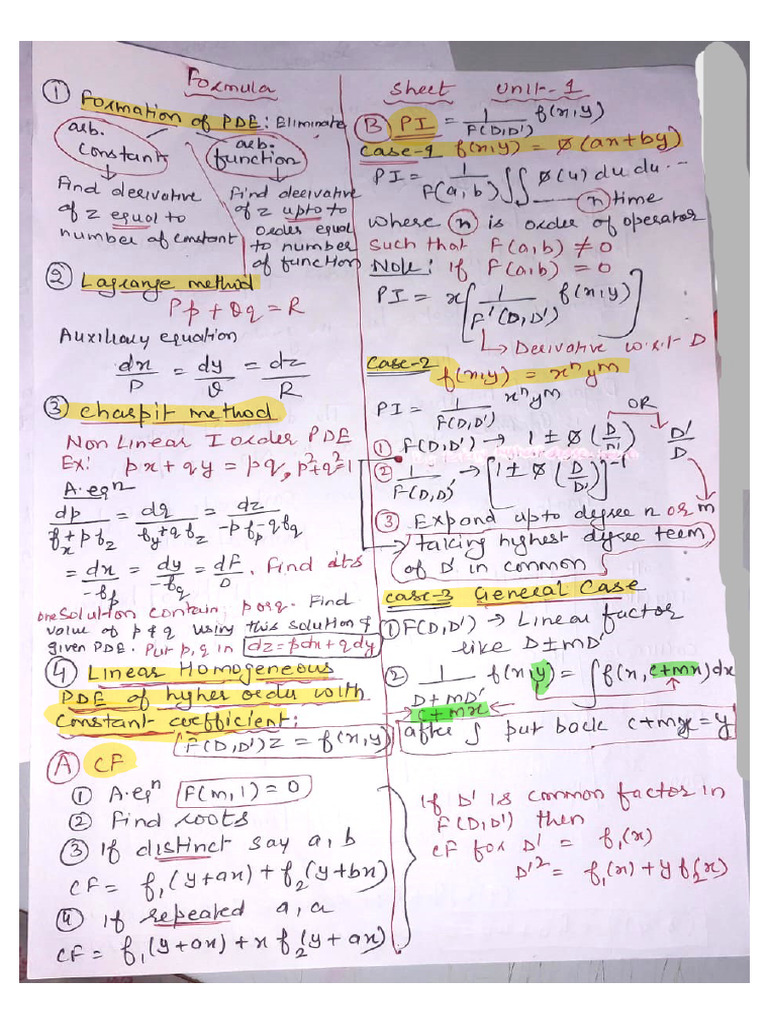 Formula Sheet Unit-1
① Formation of PDE: Eliminate
arb. constant
arb. function
Find derivative of z equal to number of constant
Find derivative of z upto to order equal to number of function
② Lagrange method
Pp + Qq = R
Auxiliary equation
dx/P = dy/Q = dz/R
③ Charpit method
Non Linear I order PDE
Ex: px + qy = pq, p²+q²=1
A·eqⁿ
dp/(f_x + p f_z) = dq/(f_y + q f_z) = dz/(-p f_p - q f_q)
= dx/(-f_p) = dy/(-f_q) = dF/0. Find its
one solution contain; p or q. Find
value of p & q using this solution &
given PDE. Put p, q in dz = pdx + qdy
④ Linear Homogeneous
PDE of higher order with
Constant coefficient:
F(D,D')z = f(x,y)
Ⓐ CF
① A·eqⁿ F(m,1) = 0
② Find roots
③ If distinct say a, b
CF = f₁(y+ax) + f₂(y+bx)
④ If repeated a, a
CF = f₁(y+ax) + x f₂(y+ax)
Ⓑ PI = 1/F(D,D') f(x,y)
Case-1 f(x,y) = Ø(ax+by)
PI = 1/F(a,b) ∫∫ Ø(u) du du...
ⓝ time
where ⓝ is order of operator
such that F(a,b) ≠ 0
Note: If F(a,b) = 0
PI = x[1/F'(D,D') f(x,y)]
↳ Derivative w.r.t D
Case-2 f(x,y) = xⁿyᵐ
PI = 1/F(D,D') xⁿyᵐ
OR
① F(D,D') → 1 ± Ø(D/D') D'/D
② 1/F(D,D') → [1 ± Ø(D/D')]⁻¹
③ Expand upto degree n or m
taking highest degree term
of D in common
Case-3 General Case
① F(D,D') → Linear factor
like D±mD'
② 1/(D+mD') f(x,y) = ∫f(x, c+mx)dx
c+mx
after ∫ put back c+mx=y
If D' is common factor in
F(D,D') then
CF for D' = f₁(x)
D'² = f₁(x) + y f₂(x)